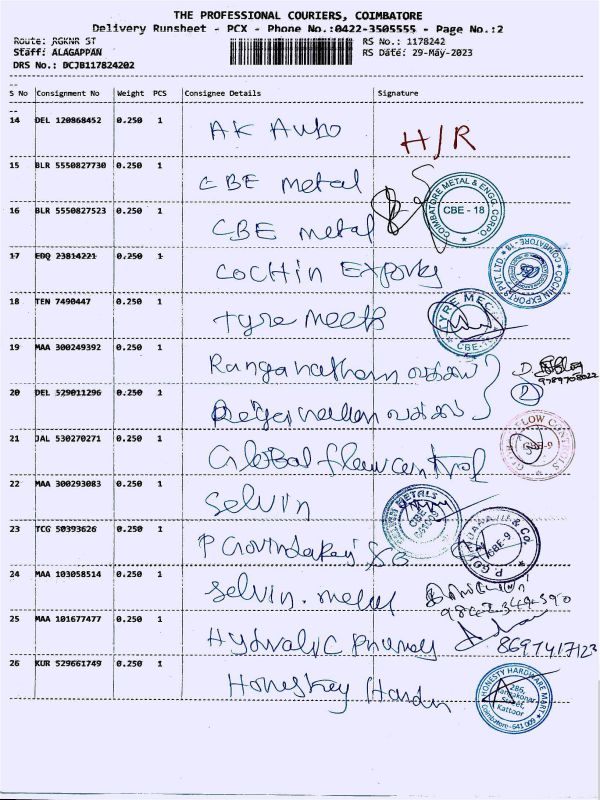 THE PROFESSIONAL COURIERS, COIMBATORE
Delivery Runsheet - PCX - Phone No.:0422-3505555 - Page No.:2
Route: RGKNR ST
Staff: ALAGAPPAN
DRS No.: DCJB117824202
RS No.: 1178242
RS Date: 29-May-2023
S No Consignment No Weight PCS Consignee Details Signature
14 DEL 120868452 0.250 1 AK Auto H/R
15 BLR 5550827730 0.250 1 CBE metal
COIMBATORE METAL & ENGG. CORPO. CBE - 18
16 BLR 5550827523 0.250 1 CBE metal
17 EDQ 23814221 0.250 1 COCHIN Exports
COCHIN EXPORTS PVT. LTD. COIMBATORE - 18
18 TEN 7490447 0.250 1 Tyre meets
TYRE MEC CBE-
19 MAA 300249392 0.250 1 Ranganathan
9789708022
20 DEL 529011296 0.250 1
21 JAL 530270271 0.250 1 Global flow control
FLOW CONTROLS CBE-9
22 MAA 300293083 0.250 1 Selvin
METALS CBE 641009
23 TCG 50393626 0.250 1 P Govindaraj
& CO. CBE-9
24 MAA 103058514 0.250 1 Selvin. metal
25 MAA 101677477 0.250 1 Hydraulic
8697417123
26 KUR 529661749 0.250 1 Hardw
HONESTY HARDWARE MART 286, Street, Kattoor Coimbatore-641 009